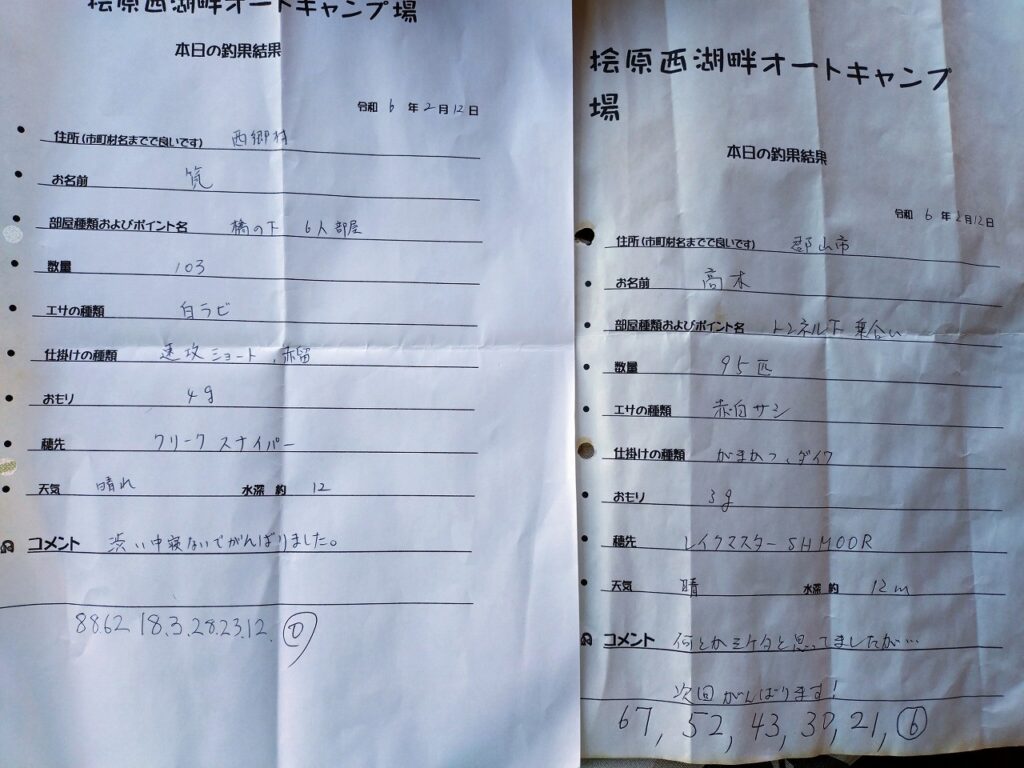 桧原西湖畔オートキャンプ場
本日の釣果結果
令和 6 年 2 月 12 日
住所(市町村名までで良いです) 西郷村
お名前
部屋種類およびポイント名 橋の下 6人部屋
数量 103
エサの種類 白ラビ
仕掛けの種類 速攻ショート、赤留
おもり 4g
穂先 クリークスナイパー
天気 晴れ 水深 約 12
コメント 渋い中寝ないでがんばりました。
88.62 18.3.28.23.12.
桧原西湖畔オートキャンプ
場
本日の釣果結果
令和 6 年 2 月 12 日
住所(市町村名までで良いです) 郡山市
お名前 高木
部屋種類およびポイント名 トンネル下 乗合い
数量 95匹
エサの種類 赤白サシ
仕掛けの種類 がまかつ、ダイワ
おもり 3g
穂先 レイクマスター SH MOOR
天気 晴 水深 約 12m
コメント 何とかミケタと思ってましたが…
次回がんばります!
67, 52, 43, 30, 21, 6